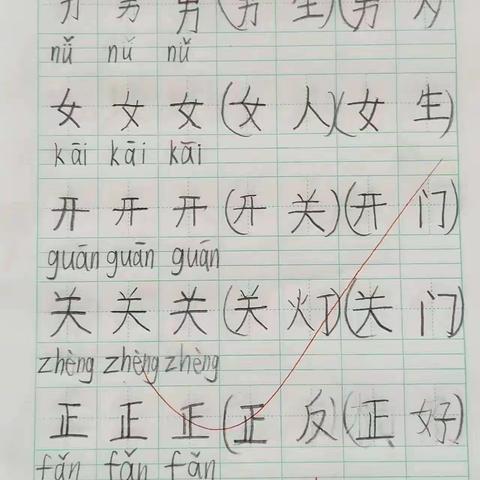 男 男 男 (男 生)(男
nǚ nǚ nǚ
女 女 女 (女 人)(女 生)
kāi kāi kāi
开 开 开 (开 关)(开 门)
guān guān guān
关 关 关 (关 灯)(关 门)
zhèng zhèng zhèng
正 正 正 (正 反)(正 好)
fǎn fǎn fǎn